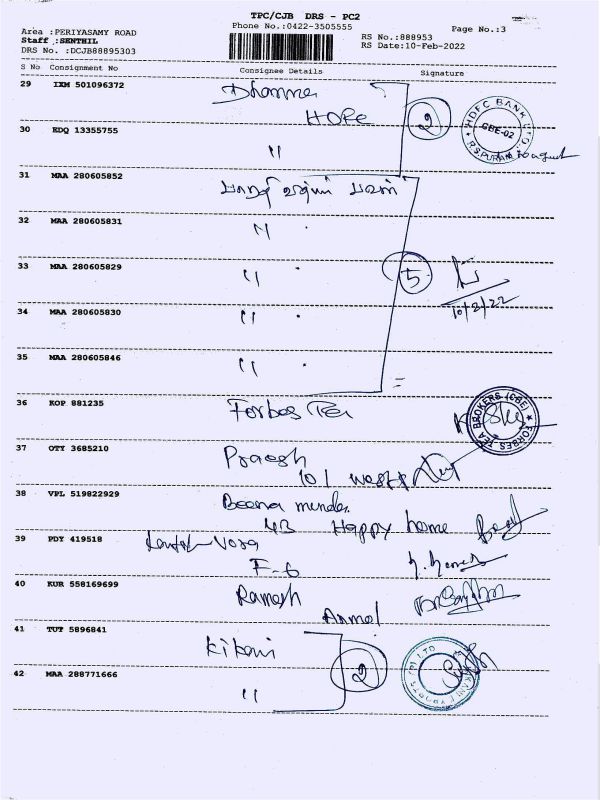 TPC/CJB DRS - PC2
Phone No.:0422-3505555
Area :PERIYASAMY ROAD
Staff :SENTHIL
DRS No. :DCJB88895303
RS No.:888953
RS Date:10-Feb-2022
Page No.:3
S No Consignment No Consignee Details Signature
29 IXM 501096372
HOPE
2
HDFC BANK LTD.
CBE-02
R.S.PURAM
30 EDQ 13355755 "
31 MAA 280605852
32 MAA 280605831 "
33 MAA 280605829 "
5
10/2/22
34 MAA 280605830 "
35 MAA 280605846 "
36 KOP 881235 Forbes Tea
FORBES TEA BROKERS (CBE)
37 OTY 3685210
101
38 VPL 519822929 Beena
4B Happy home
39 PDY 419518 Vora
F-6
40 KUR 558169699 Ramesh
Anmol
41 TUT 5896841 Kikani
2
42 MAA 288771666 "